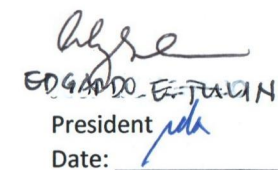 EDGARDO E. TULIN
President
Date: